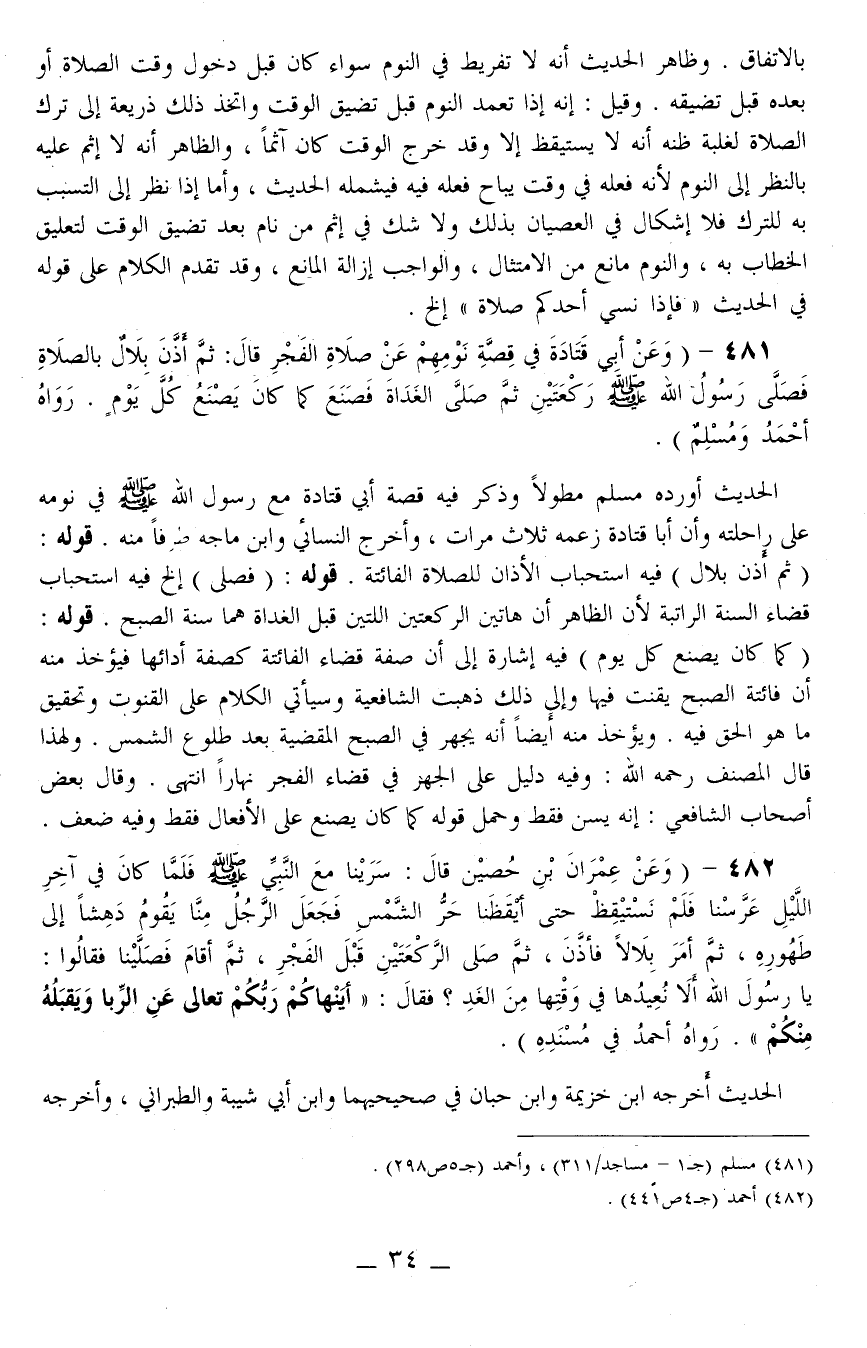 بالاتفاق . وظاهر الحديث أنه لا تفريط في النوم سواء كان قبل دخول وقت الصلاة أو
بعده قبل تضيقه . وقيل : إنه إذا تعمد النوم قبل تضيق الوقت واتخذ ذلك ذريعة إلى ترك
الصلاة لغلبة ظنه أنه لا يستيقظ إلا وقد خرج الوقت كان آثماً ، والظاهر أنه لا إثم عليه
بالنظر إلى النوم لأنه فعله في وقت يباح فعله فيه فيشمله الحديث ، وأما إذا نظر إلى التسبب
به للترك فلا إشكال في العصيان بذلك ولا شك في إثم من نام بعد تضيق الوقت لتعليق
الخطاب به ، والنوم مانع من الامتثال ، والواجب إزالة المانع ، وقد تقدم الكلام على قوله
في الحديث « فإذا نسي أحدكم صلاة » إلخ .
٤٨١ – ( وَعَنْ أبي قَتَادَةَ في قِصَّةِ نَوْمِهِمْ عَنْ صلَاةِ الفَجْرِ قالَ: ثمَّ أَذَّنَ بِلَالٌ بالصلَاةِ
فَصَلَّى رَسُولُ الله ﷺ رَكْعَتَيْنِ ثمَّ صَلَّى الغَدَاةَ فَصَنَعَ كما كانَ يَصْنَعُ كُلَّ يَوْمٍ . رَوَاهُ
أحْمَدُ وَمُسْلِمٌ ) .
الحديث أورده مسلم مطولاً وذكر فيه قصة أبي قتادة مع رسول الله ﷺ في نومه
على راحلته وأن أبا قتادة زعمه ثلاث مرات ، وأخرج النسائي وابن ماجه طرفاً منه . قوله :
( ثم أذن بلال ) فيه استحباب الأذان للصلاة الفائتة . قوله : ( فصلى ) إلخ فيه استحباب
قضاء السنة الراتبة لأن الظاهر أن هاتين الركعتين اللتين قبل الغداة هما سنة الصبح . قوله :
( كما كان يصنع كل يوم ) فيه إشارة إلى أن صفة قضاء الفائتة كصفة أدائها فيؤخذ منه
أن فائتة الصبح يقنت فيها وإلى ذلك ذهبت الشافعية وسيأتي الكلام على القنوت وتحقيق
ما هو الحق فيه . ويؤخذ منه أيضاً أنه يجهر في الصبح المقضية بعد طلوع الشمس . ولهذا
قال المصنف رحمه الله : وفيه دليل على الجهر في قضاء الفجر نهاراً انتهى . وقال بعض
أصحاب الشافعي : إنه يسن فقط وحمل قوله كما كان يصنع على الأفعال فقط وفيه ضعف .
٤٨٢ – ( وَعَنْ عِمْرَانَ بْنِ حُصيْنٍ قالَ : سَرَيْنا معَ النَّبيِّ ﷺ فَلَمَّا كانَ في آخِرِ
اللَّيْلِ عَرَّسْنا فَلَمْ نَسْتَيْقِظْ حتى أيْقَظَنا حَرُّ الشَّمْسِ فَجَعَلَ الرَّجُلُ مِنَّا يَقُومُ دَهِشاً إلى
طَهُورِهِ ، ثمَّ أمَرَ بِلَالاً فأذَّنَ ، ثم صَلى الرَّكْعَتَيْنِ قَبْلَ الفَجْرِ ، ثمَّ أقامَ فَصَلَّيْنا فقالُوا :
يا رسُولَ الله ألَا نُعِيدُها في وَقْتِها مِنَ الغَدِ ؟ فقالَ : « أيَنْهاكُمْ رَبُّكُمْ تعالى عَنِ الرِّبا وَيَقبَلُهُ
مِنْكُمْ » . رَواهُ أحمدُ في مُسْنَدِهِ ) .
الحديث أخرجه ابن خزيمة وابن حبان في صحيحيهما وابن أبي شيبة والطبراني ، وأخرجه
(٤٨١) مسلم (جـ١ – مساجد/٣١١) ، وأحمد (جـ٥ص٢٩٨) .
(٤٨٢) أحمد (جـ٤ص٤٤١) .
— ٣٤ —